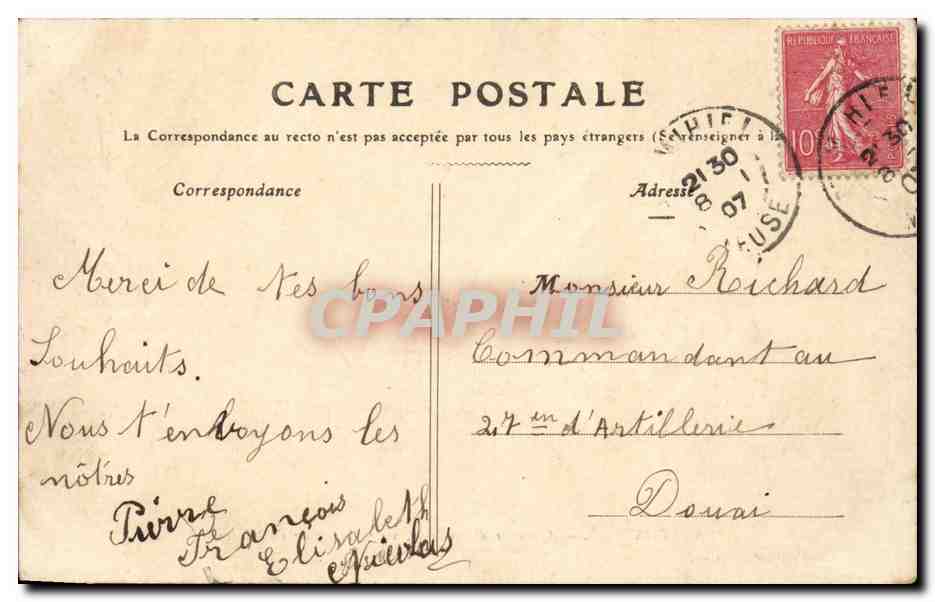 REPUBLIQUE FRANÇAISE
10
CARTE POSTALE
La Correspondance au recto n'est pas acceptée par tous les pays étrangers (Se renseigner à la
THIE
21 30
8 1
07
EUSE
Correspondance
Adresse
Merci de tes bons
Souhaits.
Nous t'envoyons les
nôtres
Pierre
François
Elisabeth
Nicolas
Monsieur Richard
Commandant au
27 en d'Artillerie
Douai
CPAPHIL